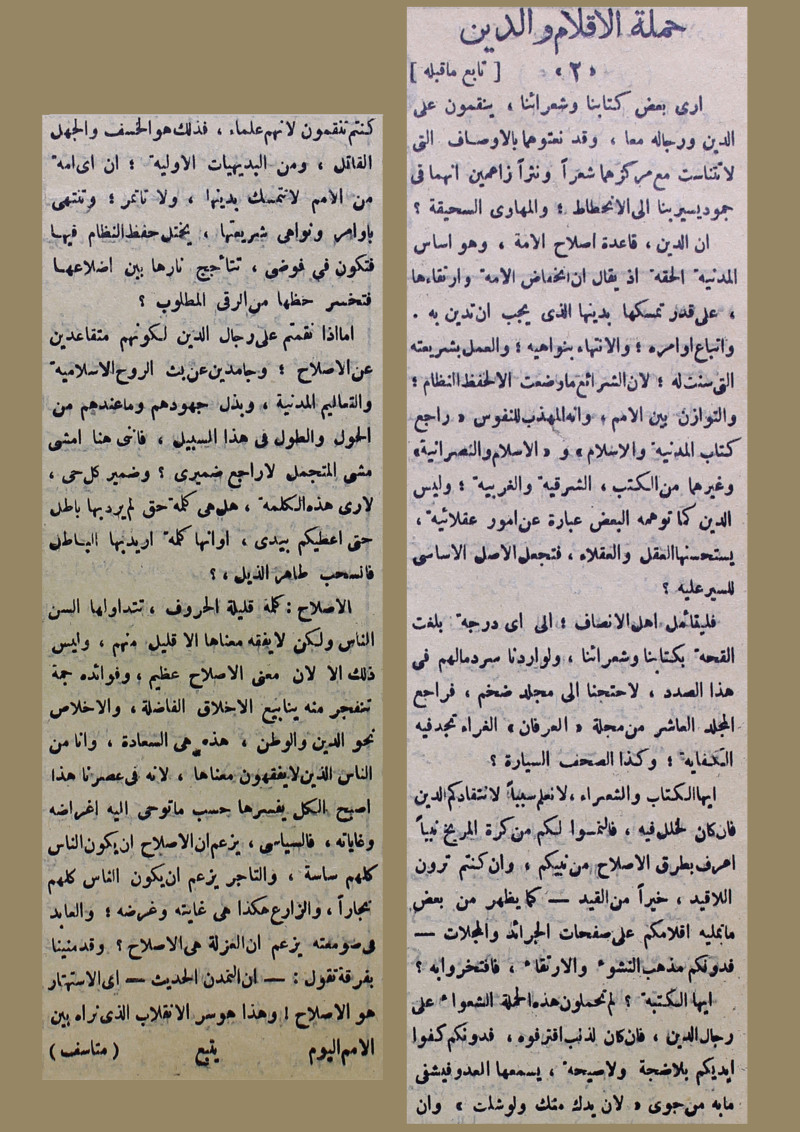 حملة الاقلام والدين
«٢» [ تابع ماقبله ]
ارى بعض كتابنا وشعرائنا ، ينقمون على
الدين ورجاله معا ، وقد نعتوهما بالاوصاف التى
لاتتناست مع مركزهما شعراً ونثراً زاهمين انهما فى
جمود يسير بنا الى الانحطاط ؛ والمهاوى السحيقة ؟
ان الدين ، قاعدة اصلاح الامة ، وهو اساس
المدنية الحقة اذ يقال ان انخفاض الامة وارتقاءها
، على قدر تمسكها بدينها الذى يجب ان تدين به .
واتباع اوامره ؛ والانتهاء بنواهيه ؛ والعمل بشريعته
التى سنت له ؛ لان الشرائع ماوضعت الالحفظ النظام ؛
والتوازن بين الامم ، وانه المهذب للنفوس « راجع
كتاب المدنية والاسلام » و « الاسلام والنصرانية»
وغيرها من الكتب ، الشرقية والغربية ؛ وليس
الدين كما توهمه البعض عبارة عن امور عقلائية ،
يستحسنها العقل والعقلاء ، فتجعل الاصل الاساسى
للسير عليه ؟
فليتأمل اهل الانصاف ؛ الى اى درجة بلغت
القحة بكتابنا وشعرائنا ، ولو اردنا سرد مالهم فى
هذا الصدد ، لاحتجنا الى مجلد ضخم ، فراجع
المجلد العاشر من مجلة « العرفان » الغراء تجد فيه
الكفاية ؛ وكذا الصحف السيارة ؟
ايها الكتاب والشعراء ، لانعلم سبباً لانتقادكم الدين
فان كان لخلل فيه ، فالتمسوا لكم من كرة المريخ نبياً
اعرف بطرق الاصلاح من نبيكم ، وان كنتم ترون
اللاقيد ، خيراً من القيد — كما يظهر من بعض
ماتمليه اقلامكم على صفحات الجرائد والمجلات —
فدونكم مذهب النشوء والارتقاء ، فافتخروا به ؟
ايها الكتبة ؟ لم تحملون هذه الحملة الشعواء على
رجال الدين ، فان كان لذنب اقترفوه ، فدونكم كفوا
ايديكم بلاضجة ولاصيحة ، يسمعها العدو فيشفى
مابه من جوى « لان يدك منك ولوشلت » وان
كنتم تنقمون لانهم علماء ، فذلك هو الخسف والجهل
القاتل ، ومن البديهيات الاولية ؛ ان اى امة
من الامم لاتتمسك بدينها ، ولا تاتمر ؛ وتنتهى
باوامر ونواهى شريعتها ، يختل حفظ النظام فيها
فتكون في فوضى ، تتأجيج نارها بين اضلاعها
فتخسر حظها من الرقى المطلوب ؟
امااذا نقمتم على رجال الدين لكونهم متقاعدين
عن الاصلاح ؛ وجامدين عن بث الروح الاسلامية
والتعاليم المدنية ، وبذل جهودهم وماعندهم من
الحول والطول فى هذا السبيل ، فاننى هنا امشى
مشى المتجمل لاراجع ضميرى ؟ وضمير كل حى ،
لارى هذه الكلمة ، هل هى كلمة حق لم يرد بها باطل
حتى اعطيكم بيدى ، اوانها كلمة اريد بها الباطل
فانسحب طاهر الذيل ، ؟
الاصلاح : كلمة قليلة الحروف ، تتداولها السن
الناس ولكن لايفقه معناها الا قليل منهم ، وليس
ذلك الا لان معنى الاصلاح عظيم ، وفوائده جمة
تنفجر منه ينابيع الاخلاق الفاضلة ، والاخلاص
نحو الدين والوطن ، هذه هى السعادة ، وانا من
الناس الذين لايفقهون معناها ، لانه فى عصرنا هذا
اصبح الكل يفسرها حسب ماتوحى اليه اغراضه
وغاياته ، فالسياسى ، يزعم ان الاصلاح ان يكون الناس
كلهم ساسة ، والتاجر يزعم ان يكون الناس كلهم
تجاراً ، والزارع هكذا هى غايته وغرضه ؛ والعابد
فى صومعته يزعم ان العزلة هى الاصلاح ؟ وقد منينا
بفرقة تقول : — ان التمدن الحديث — اى الاستهتار
هو الاصلاح ! وهذا هو سر الانقلاب الذى نراه بين
الامم اليوم يتبع ( متاسف )